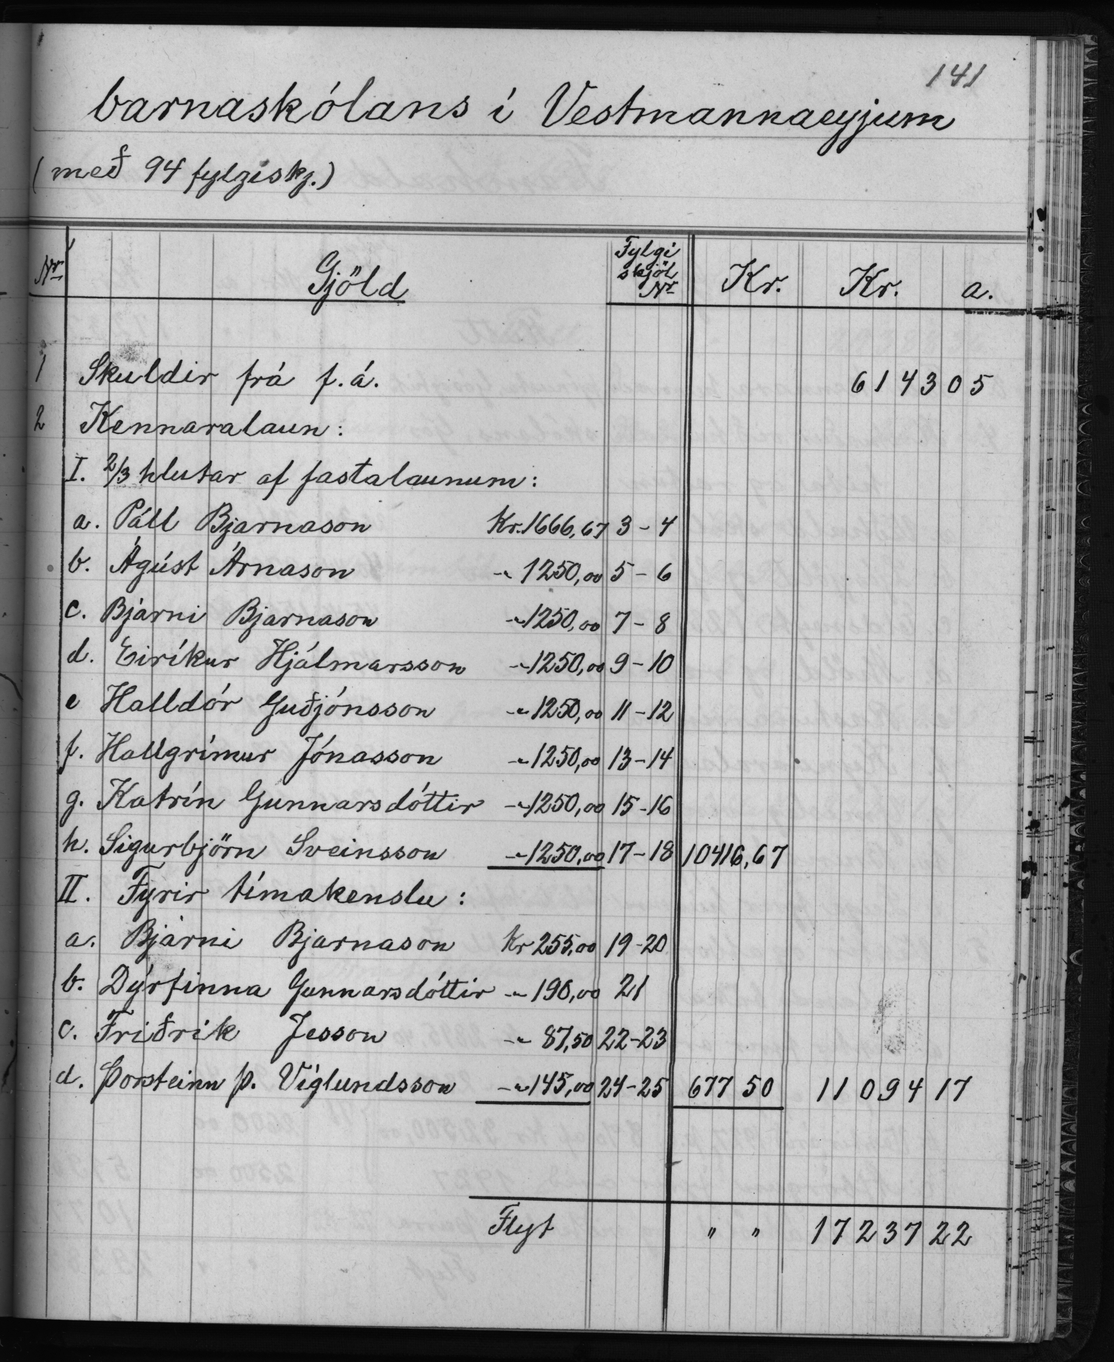 141
barnaskólans í Vestmannaeyjum
(með 94 fylgiskj.)
Nr. Gjöld Fylgi skjöl Nr. Kr. Kr. a.
1 Skuldir frá f.á. 6143 05
2 Kennaralaun:
I. 2/3 hlutar af fastalaunum:
a. Páll Bjarnason Kr. 1666,67 3-4
b. Ágúst Árnason -"- 1250,00 5-6
c. Bjarni Bjarnason -"- 1250,00 7-8
d. Eiríkur Hjálmarsson -"- 1250,00 9-10
e Halldór Guðjónsson -"- 1250,00 11-12
f. Hallgrímur Jónasson -"- 1250,00 13-14
g. Katrín Gunnarsdóttir -"- 1250,00 15-16
h. Sigurbjörn Sveinsson -"- 1250,00 17-18 10416,67
II. Fyrir tímakenslu:
a. Bjarni Bjarnason Kr 255,00 19-20
b. Dýrfinna Gunnarsdóttir -"- 190,00 21
c. Friðrik Jesson -"- 87,50 22-23
d. Þorsteinn Þ. Víglundsson -"- 145,00 24-25 677 50 11094 17
Flyt " " 17237 22